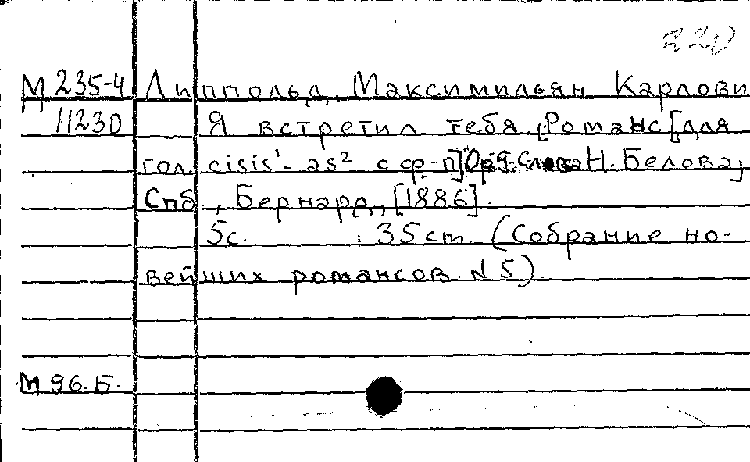 220
М 235-4 Липпольд, Максимильян Карлови
11230 Я встретил тебя. [Романс [для
гол. cisis¹-as² с ф-п] Ор. 5. Слова Н. Белова,
Спб., Бернард, [1886].
5с. 35cm. (Собрание но-
вейших романсов. N 5).
М 96.Б.